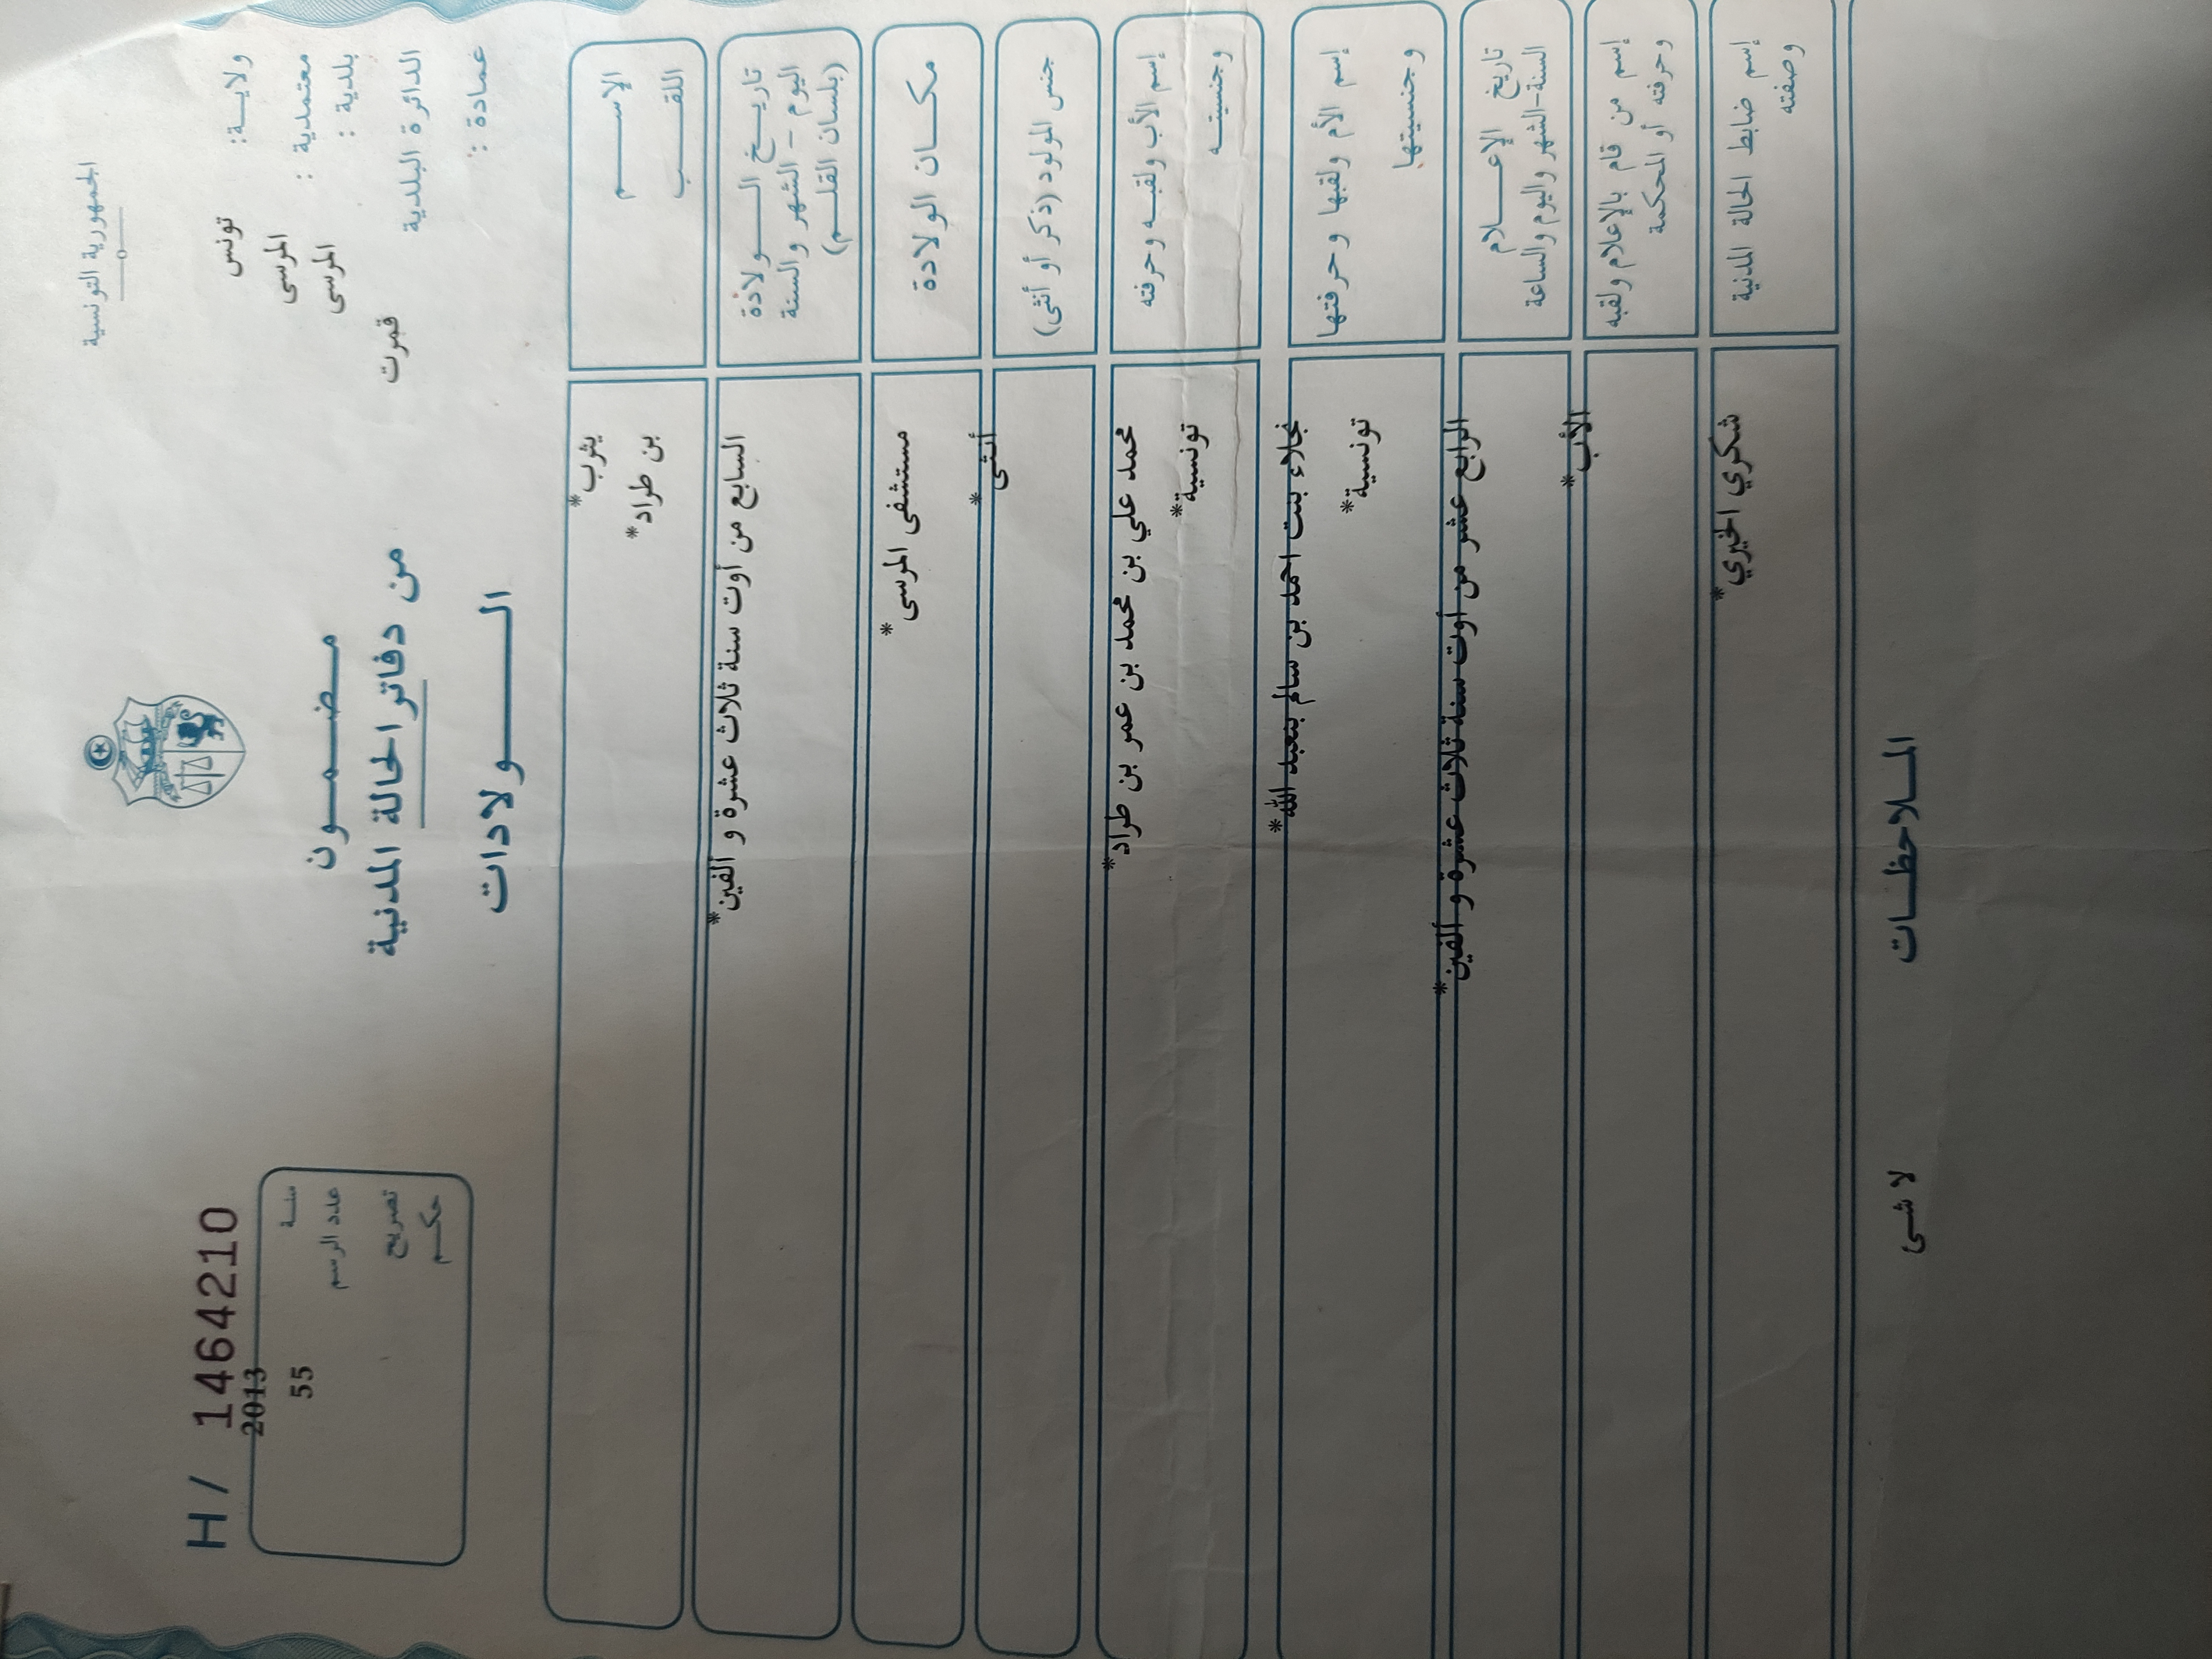 الجمهورية التونسية
ولايـــة: تونس
معتمدية : المرسى
بلدية : المرسى
الدائرة البلدية قمرت
عمادة :
H / 1464210
سنــة 2013
عدد الرسم 55
تصريح
حكـــم
مـــضـــمـــون
من دفاتر الحالة المدنية
الـــــولادات
الإســـــم يثرب*
اللقـــــب بن طراد*
تاريـــخ الـــــولادة
اليوم - الشهر والسنة
(بلسان القلـــم)
السابع من أوت سنة ثلاث عشرة و ألفين*
مكـــان الولادة مستشفى المرسى*
جنس المولود (ذكر أو أنثى) أنثى*
إسم الأب ولقبـه وحرفته محمد علي بن محمد بن عمر بن طراد*
وجنسيتـــه تونسية*
إسم الأم ولقبها وحرفتها نجلاء بنت احمد بن سالم بنعبد الله*
وجنسيتها تونسية*
تاريخ الإعـــلام
السنة-الشهر واليوم والساعة
الرابع عشر من أوت سنة ثلاث عشرة و ألفين*
إسم من قام بالإعلام ولقبه
وحرفته أو المحكمة
الأب*
إسم ضابط الحالة المدنية
وصفته
شكري الخيري*
المـــلاحظـــات لا شى